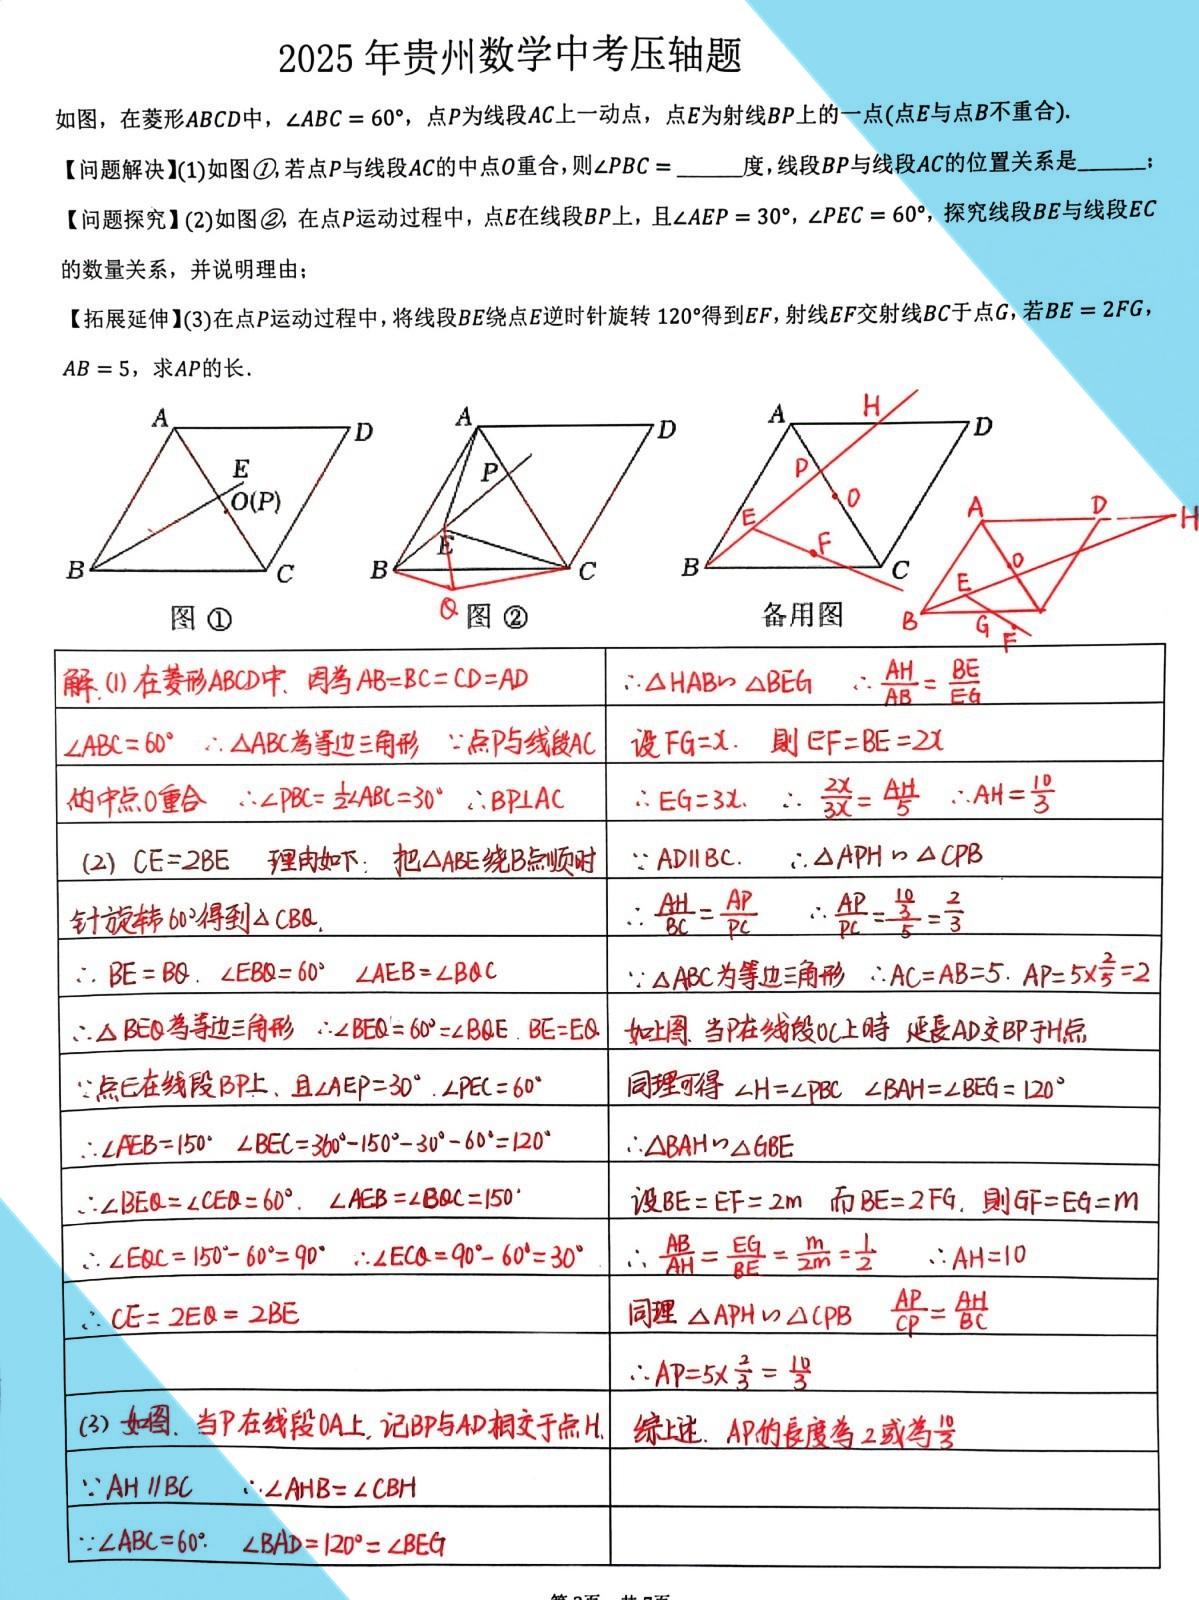 2025年贵州数学中考压轴题
如图，在菱形ABCD中，∠ABC = 60°，点P为线段AC上一动点，点E为射线BP上的一点(点E与点B不重合).
【问题解决】(1)如图①，若点P与线段AC的中点O重合，则∠PBC = ______度，线段BP与线段AC的位置关系是______；
【问题探究】(2)如图②，在点P运动过程中，点E在线段BP上，且∠AEP = 30°，∠PEC = 60°，探究线段BE与线段EC
的数量关系，并说明理由；
【拓展延伸】(3)在点P运动过程中，将线段BE绕点E逆时针旋转 120°得到EF，射线EF交射线BC于点G，若BE = 2FG，
AB = 5，求AP的长.
A D E O(P) B C
图 ①
A D P E B C Q
图 ②
A H D P O E F B C
备用图
A D H O E B G F
解.(1) 在菱形ABCD中. 因为 AB=BC=CD=AD
∠ABC=60° ∴△ABC為等边三角形 ∵点P与线段AC
的中点O重合 ∴∠PBC=½∠ABC=30° ∴BP⊥AC
(2) CE=2BE 理由如下: 把△ABE绕B点顺时
针旋转60°得到△CBQ.
∴ BE=BQ. ∠EBQ=60° ∠AEB=∠BQC
∴△BEQ為等边三角形 ∴∠BEQ=60°=∠BQE. BE=EQ
∵点E在线段BP上、且∠AEP=30°. ∠PEC=60°
∴∠AEB=150° ∠BEC=360°-150°-30°-60°=120°
∴∠BEQ=∠CEQ=60°. ∠AEB=∠BQC=150°
∴∠EQC=150°-60°=90° ∴∠ECQ=90°-60°=30°
∴ CE=2EQ=2BE
(3) 如图. 当P在线段OA上, 记BP与AD相交于点H.
∵AH∥BC ∴∠AHB=∠CBH
∵∠ABC=60°. ∠BAD=120°=∠BEG
∴△HAB∽△BEG ∴ AH/AB = BE/EG
设FG=x. 則EF=BE=2x
∴EG=3x. ∴ 2x/3x = AH/5 ∴AH=10/3
∵AD∥BC. ∴△APH∽△CPB
∴ AH/BC = AP/PC ∴ AP/PC = 10/3/5 = 2/3
∵△ABC为等边三角形 ∴AC=AB=5. AP=5×2/5=2
如上图. 当P在线段OC上時 延長AD交BP于H点
同理可得 ∠H=∠PBC ∠BAH=∠BEG=120°
∴△BAH∽△GBE
设BE=EF=2m 而BE=2FG. 則GF=EG=m
∴ AB/AH = EG/BE = m/2m = 1/2 ∴AH=10
同理 △APH∽△CPB AP/CP = AH/BC
∴AP=5×2/3=10/3
综上述. AP的長度為2或為10/3